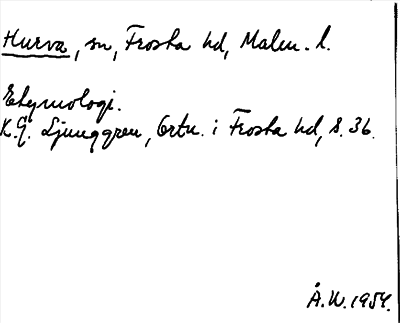 Hurva, sn, Frosta hd, Malm. l.
Etymologi.
K.G. Ljunggren, Ortn. i Frosta hd, s. 36.
Å.W. 1954.